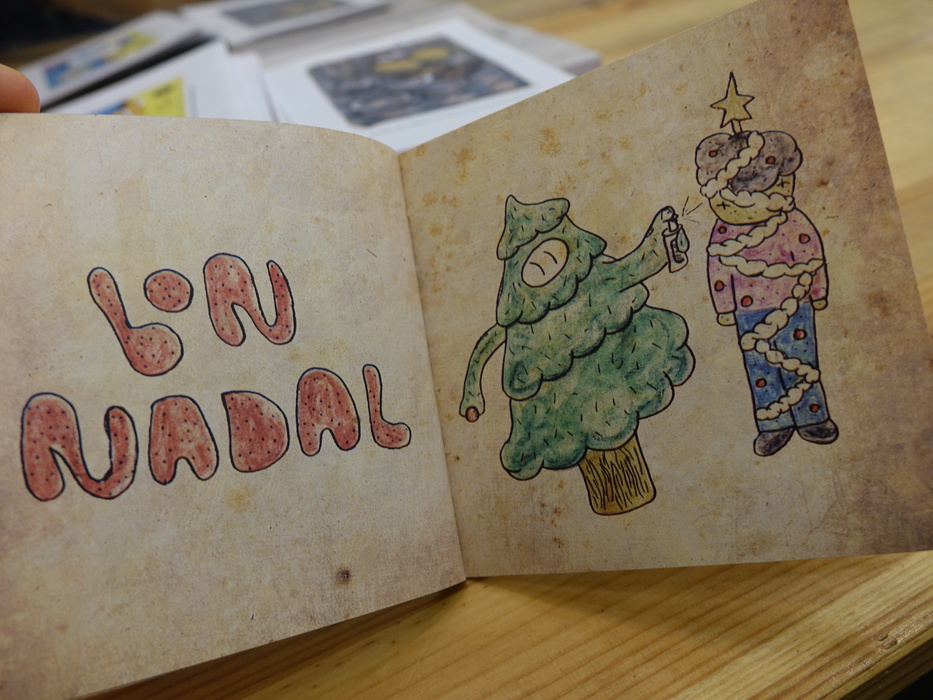 bon
NADAL